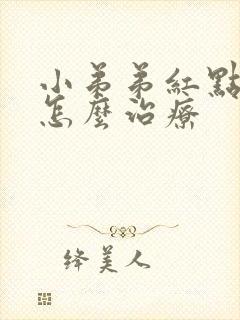 小弟弟紅點
怎麼治療
絳美人